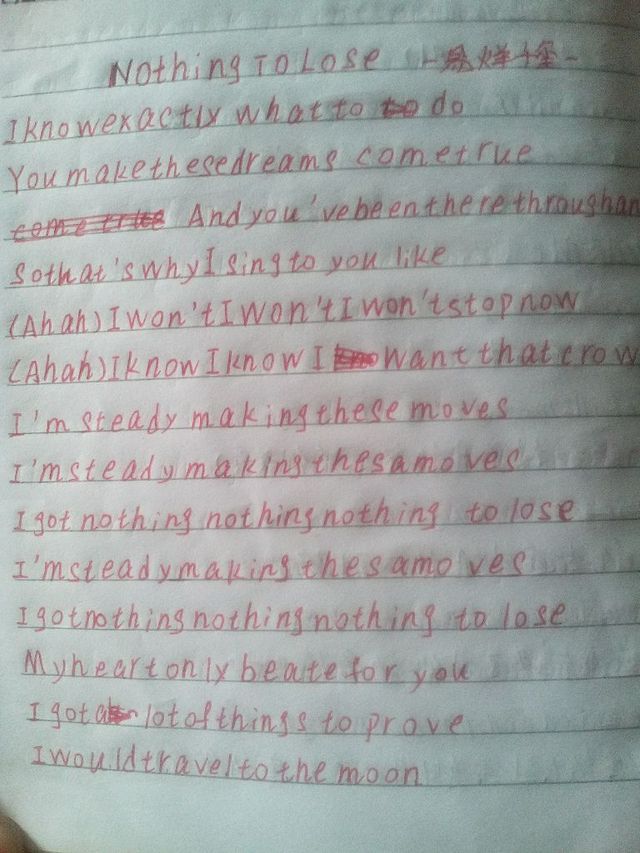 Nothing To Lose
I know exactly what to do
You make these dreams come true
come true And you've been there through an
So that's why I sing to you like
(Ah ah) I won't I won't I won't stop now
(Ah ah) I know I know I want that crow
I'm steady making these moves
I'm steady making thesamoves
I got nothing nothing nothing to lose
I'm steady making thesamoves
I got nothing nothing nothing to lose
My heart only beate for you
I got lot of things to prove
I would travel to the moon